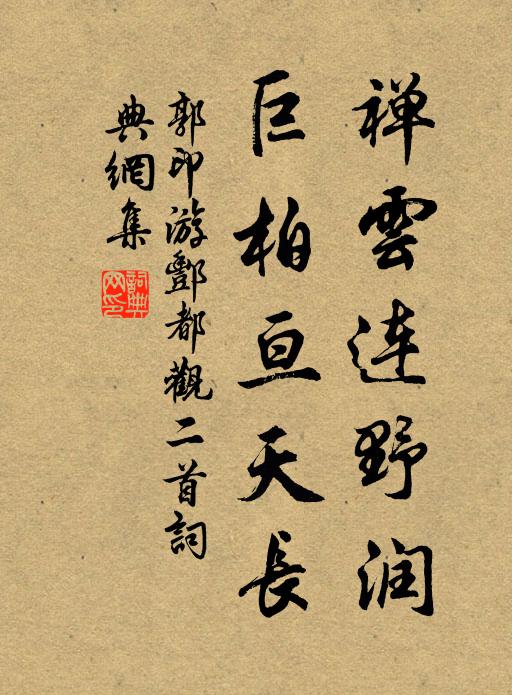 禅雲连野润
巨柏亘天長
郭印游酆都觀二首詞
典網集
詞典网印